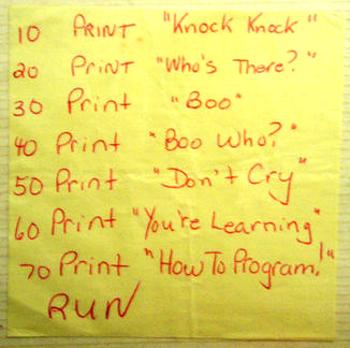 10 PRINT "Knock Knock"
20 PRINT "Who's There?"
30 Print "Boo"
40 Print "Boo Who?"
50 Print "Don't Cry"
60 Print "You're Learning"
70 Print "How To Program!"
RUN